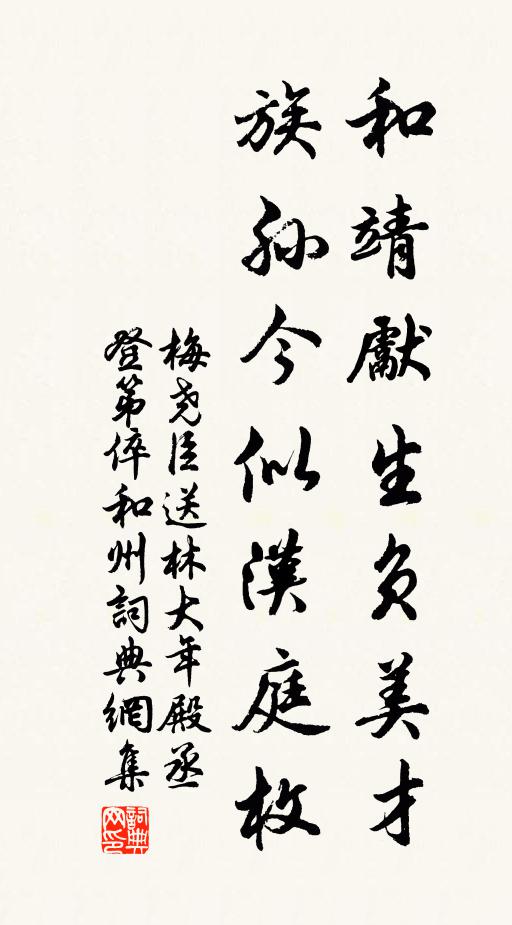 和靖獻生負美才
族孫今似漢庭枚
梅堯臣送林大年殿丞
登第倅和州詞典網集
詞典網印